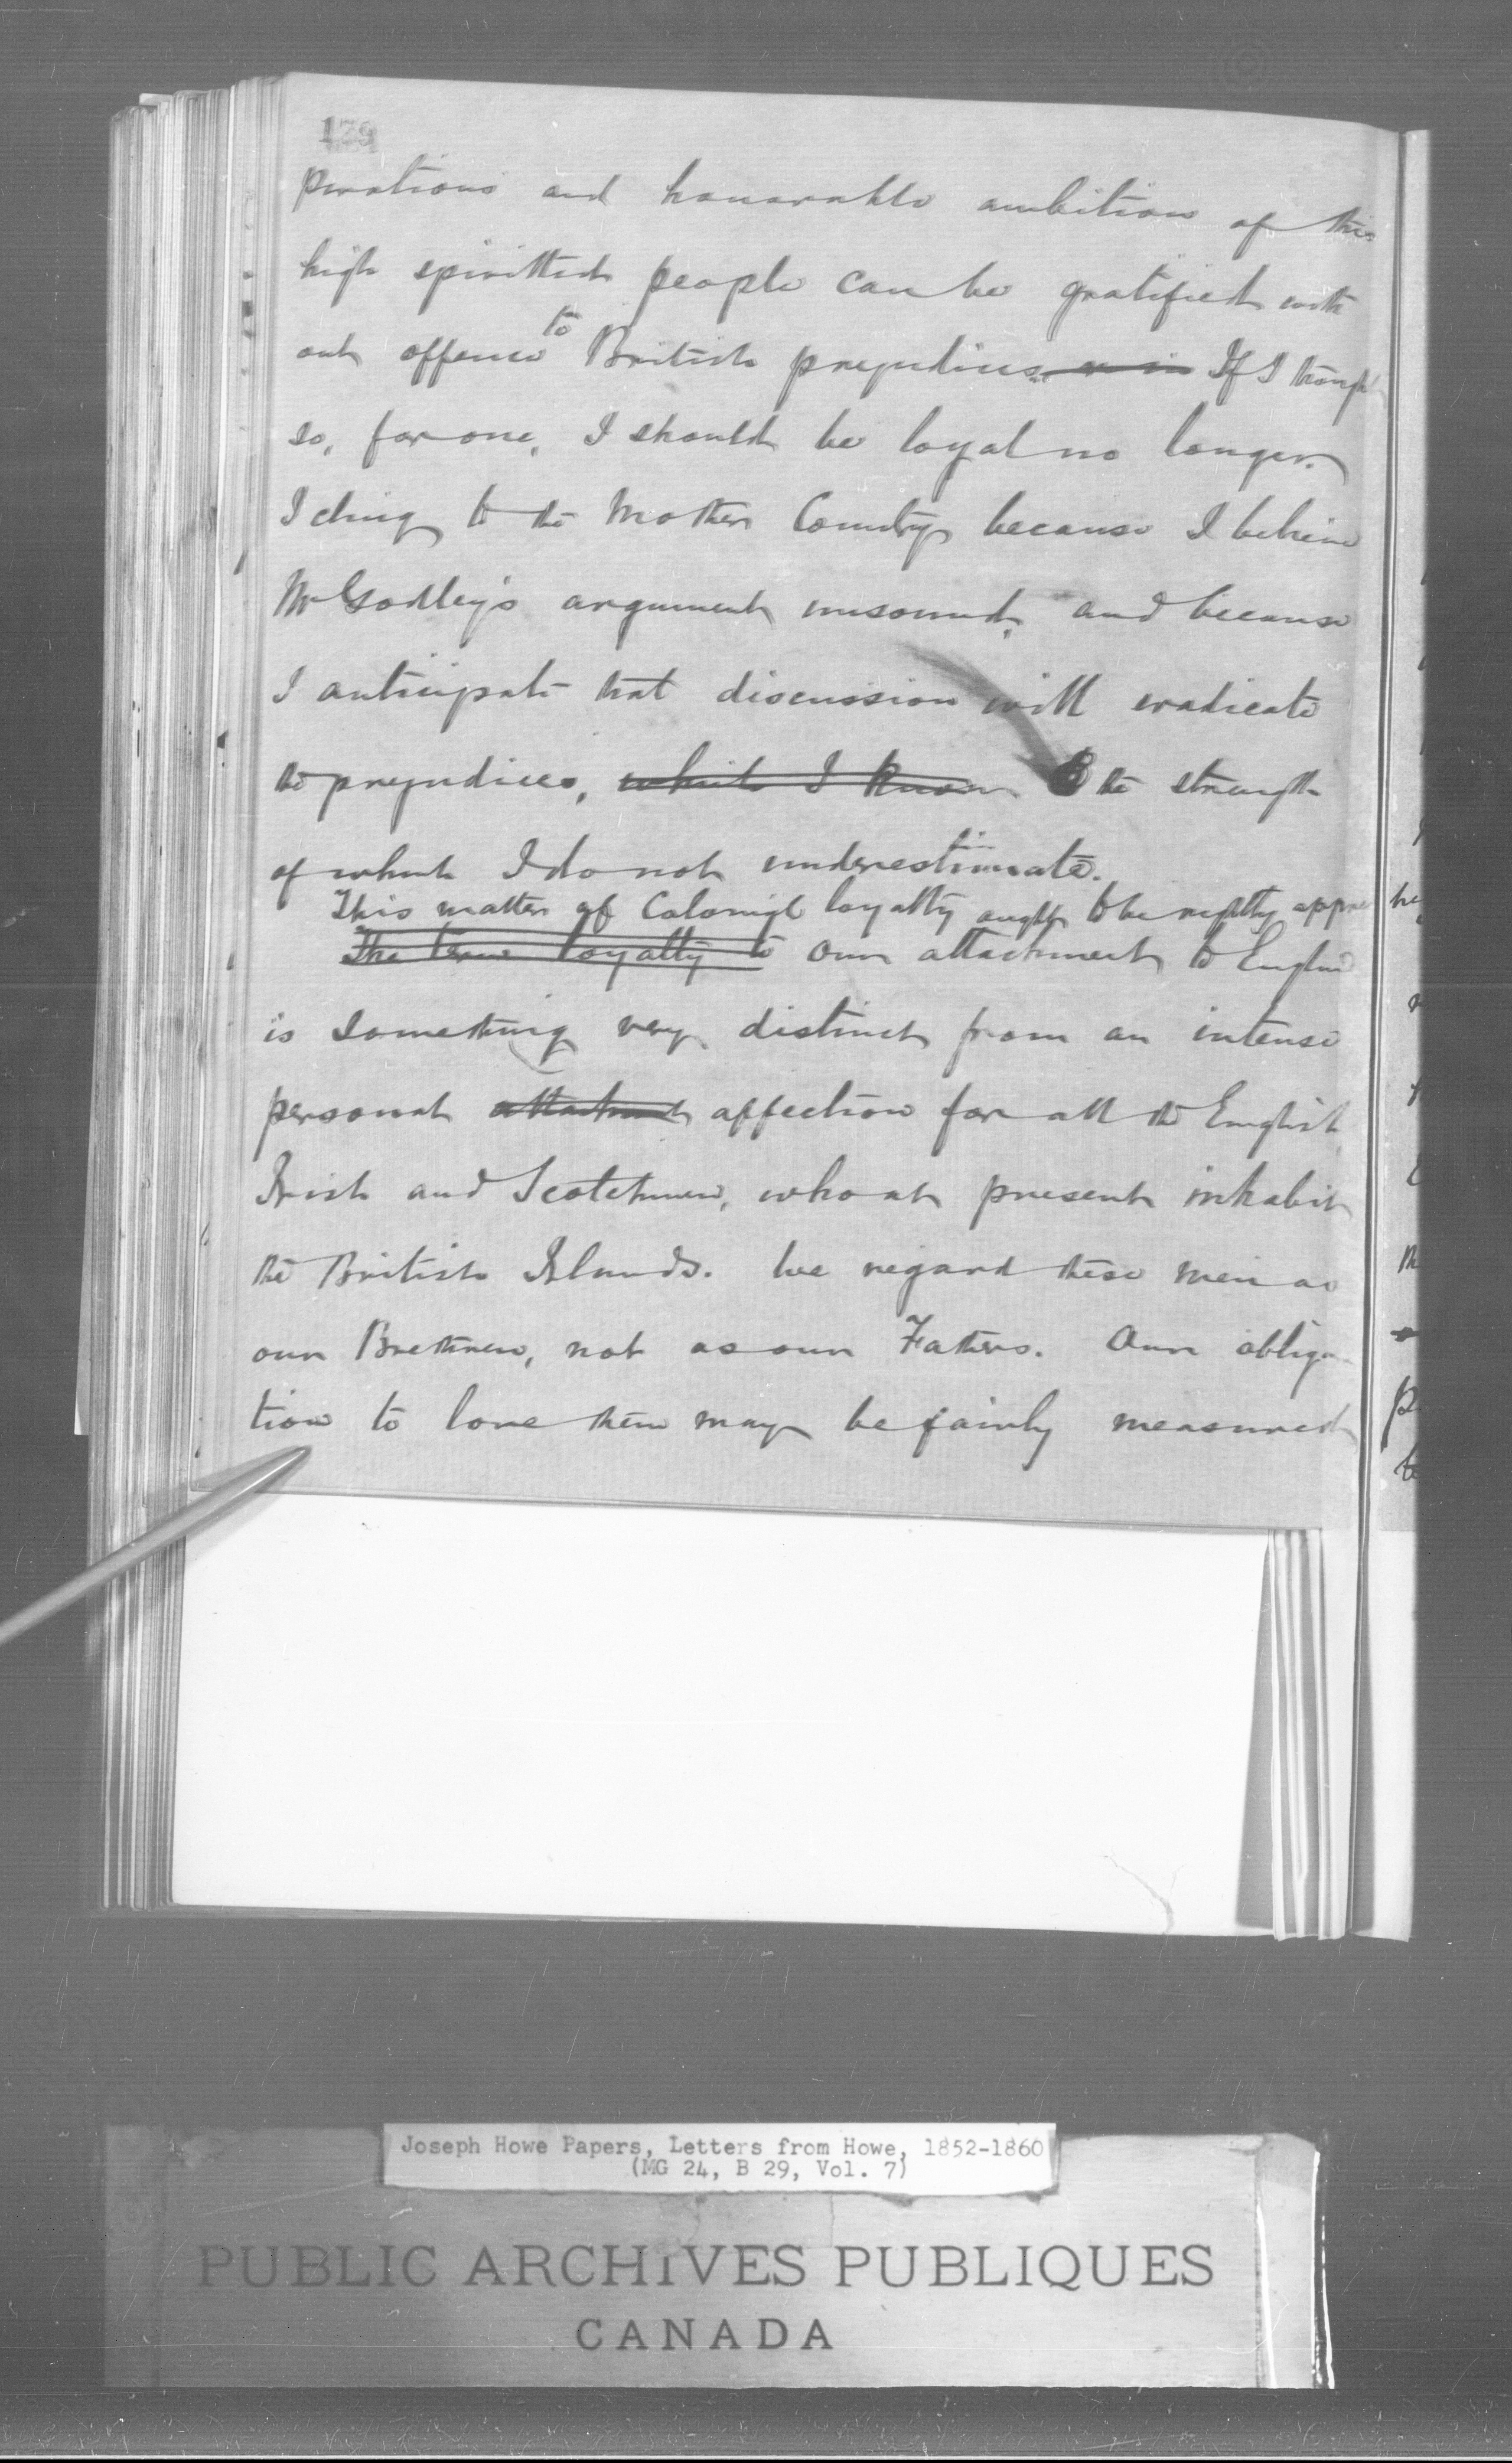 179
pirations and honorable ambition of this
high spiritted people can be gratified with
out offence to British prejudices or in If I though
so, for one, I should be loyal no longer.
I cling to the Mother Country because I believe
Mr Godley's argument unsound, and because
I anticipate that discussion will eradicate
the prejudices, which I know the strength
of which I do not underestimate.
This matter of Colonial loyalty ought to be rightly appre
The true loyalty to Our attachment to England
is something very distinct from an intense
personal attachment affection for all the English
Irish and Scotchmen, who at present inhabit
the British Islands. We regard these men as
our Brethren, not as our Fathers. Our obliga-
tion to love them may be fairly measured
Joseph Howe Papers, Letters from Howe, 1852-1860
(MG 24, B 29, Vol. 7)
PUBLIC ARCHIVES PUBLIQUES
CANADA